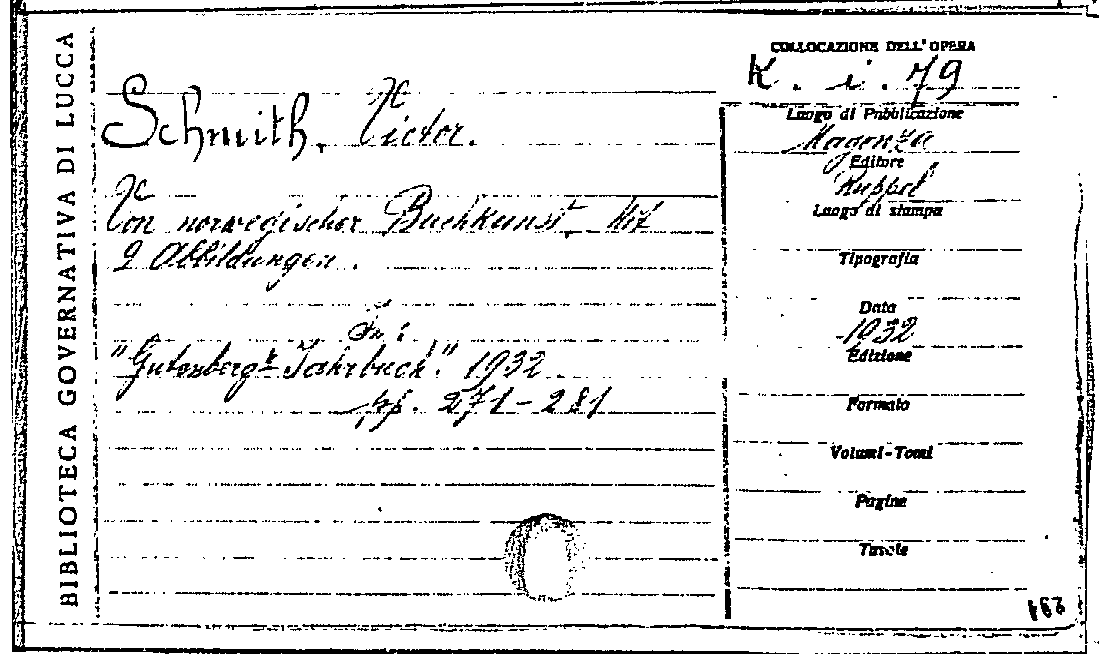 BIBLIOTECA GOVERNATIVA DI LUCCA
Schmith, Victor.
Von norwegischer Buchkunst. Mit
2 Abbildungen.
In:
"Gutenberg-Jahrbuch." 1932
pp. 271-281
COLLOCAZIONE DELL'OPERA
K. i. 79
Luogo di Pubblicazione
Magonza
Editore
Ruppel
Luogo di stampa
Tipografia
Data
1932
Edizione
Formato
Volumi-Tomi
Pagine
Tavole
291